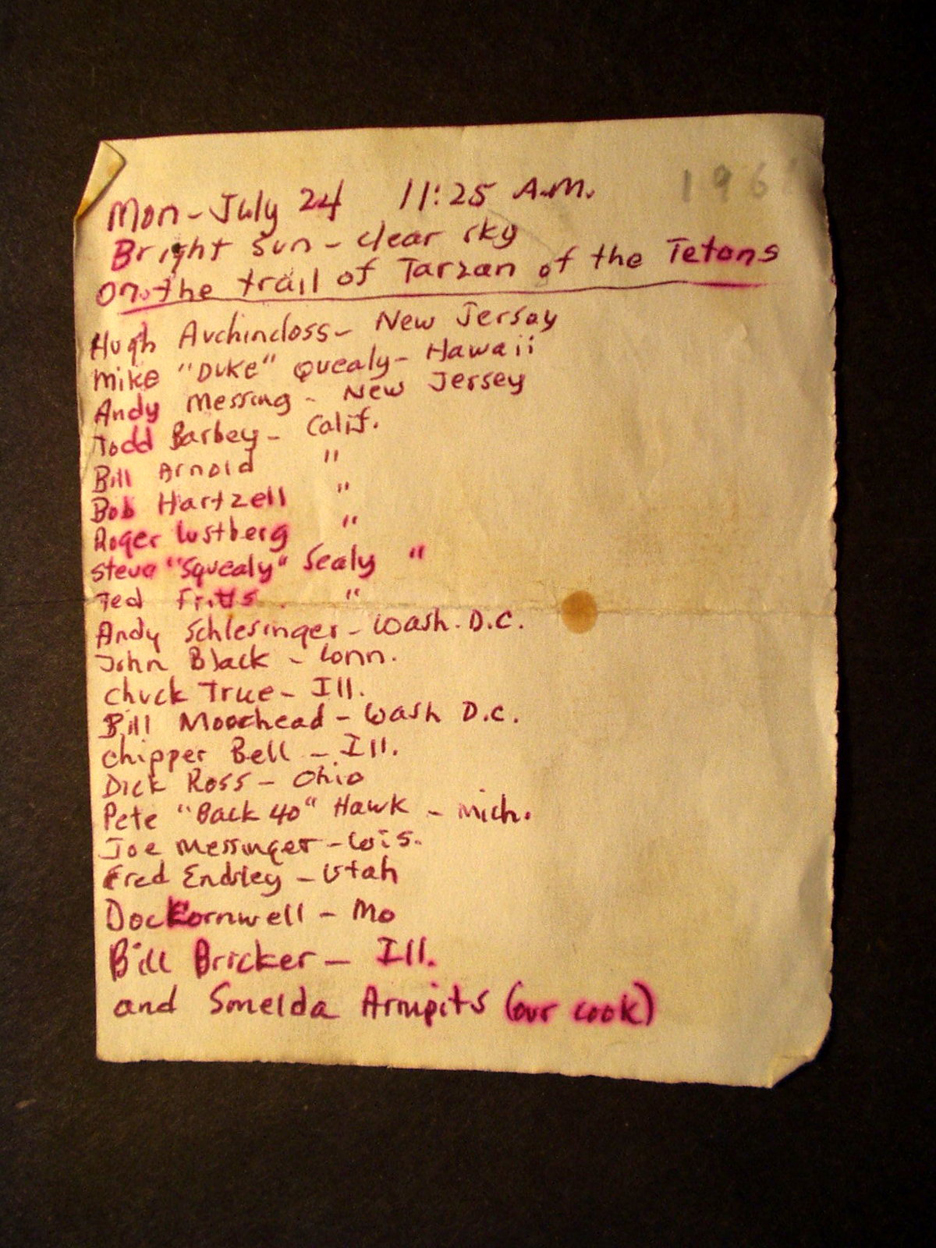 196
Mon - July 24 11:25 A.M.
Bright sun - clear sky
On the trail of Tarzan of the Tetons
Hugh Auchincloss - New Jersey
Mike "Duke" Quealy - Hawaii
Andy Messing - New Jersey
Todd Barbey - Calif.
Bill Arnold "
Bob Hartzell "
Roger Lustberg "
Steve "Squealy" Sealy "
Ted Fritts "
Andy Schlesinger - Wash. D.C.
John Black - Conn.
Chuck True - Ill.
Bill Moorhead - Wash D.C.
Chipper Bell - Ill.
Dick Ross - Ohio
Pete "Back 40" Hawk - Mich.
Joe Messinger - Wis.
Fred Endsley - Utah
Doc Cornwell - Mo
Bill Bricker - Ill.
and Smelda Armpits (our cook)